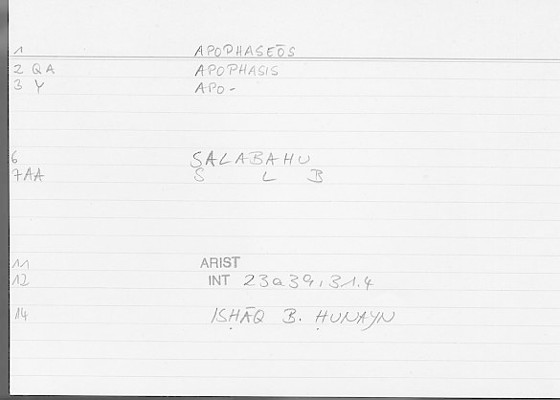 1 APOPHASEŌS
2 QA APOPHASIS
3 Y APO-
6 SALABAHU
7AA S L B
11 ARIST
12 INT 23a39,31.4
14 ISḤĀQ B. ḤUNAYN